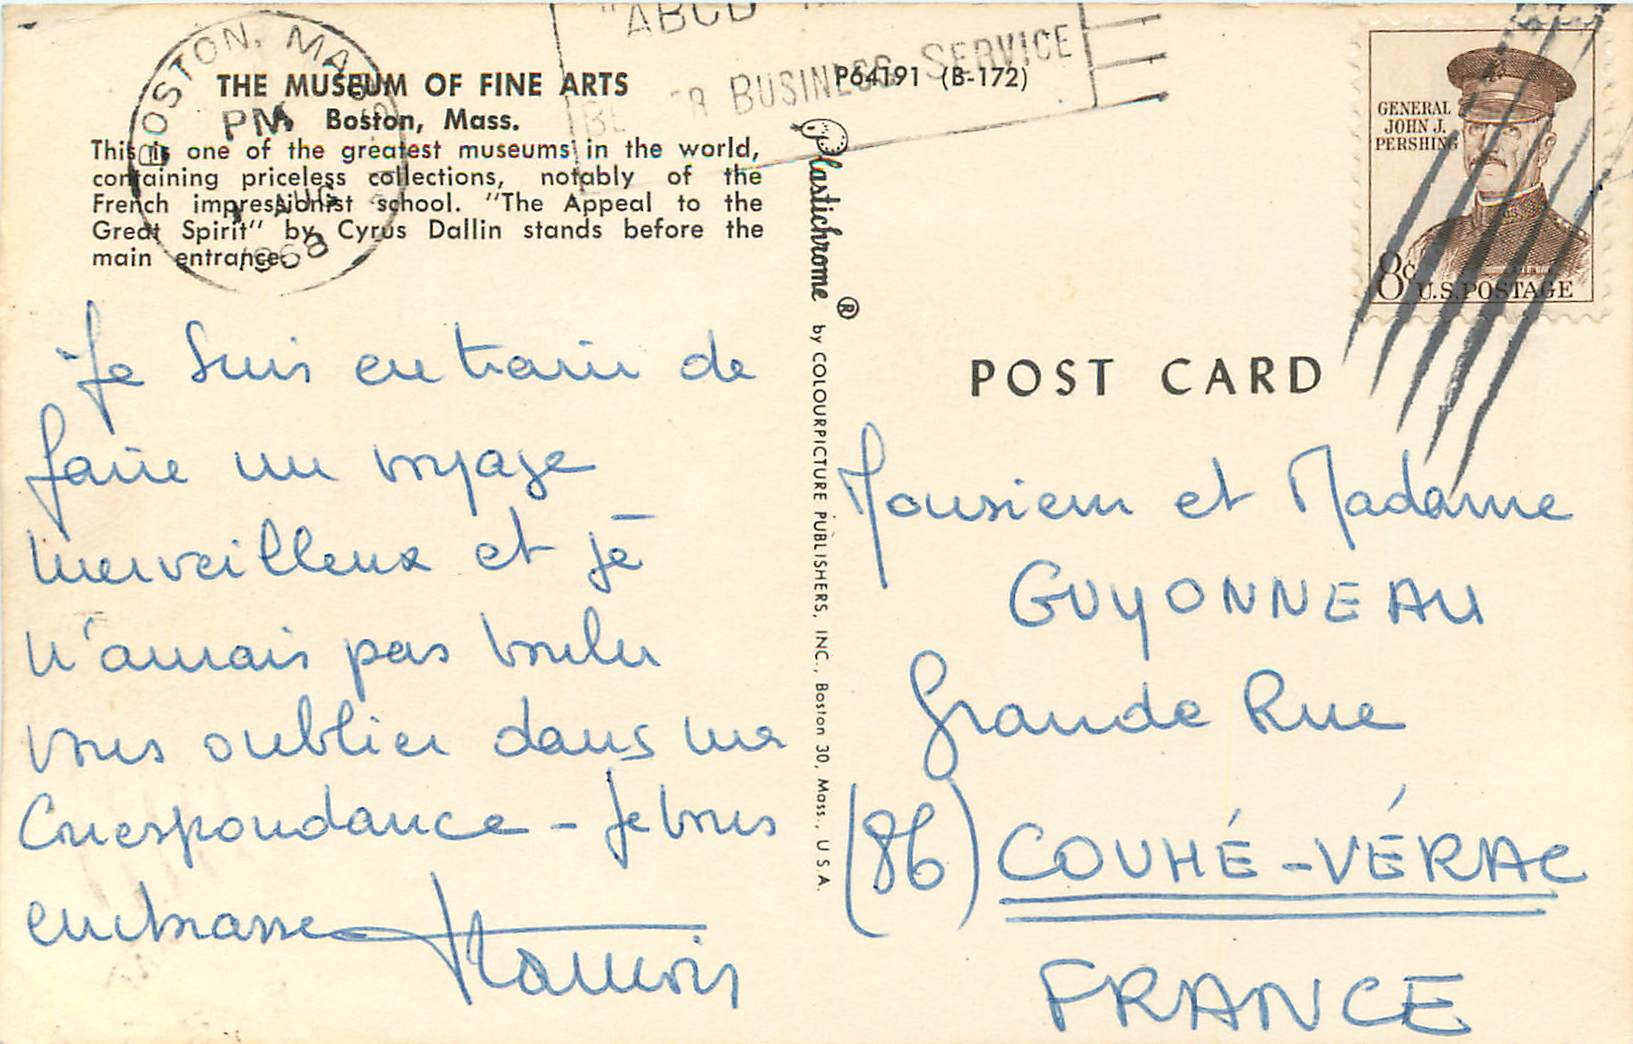 "ABCD
BUSINESS SERVICE
BOSTON, MASS
PM
AUG
1968
THE MUSEUM OF FINE ARTS
Boston, Mass.
This is one of the greatest museums in the world,
containing priceless collections, notably of the
French impressionist school. "The Appeal to the
Great Spirit" by Cyrus Dallin stands before the
main entrance.
P64191 (B-172)
Plastichrome ® by COLOURPICTURE PUBLISHERS, INC., Boston 30, Mass., U.S.A.
GENERAL
JOHN J.
PERSHING
8c
U.S. POSTAGE
POST CARD
Je suis en train de
faire un voyage
merveilleux et je
n'aurais pas voulu
vous oublier dans ma
correspondance - Je vous
embrasse
François
Monsieur et Madame
GUYONNEAU
Grande Rue
(86) COUHÉ-VÉRAC
FRANCE